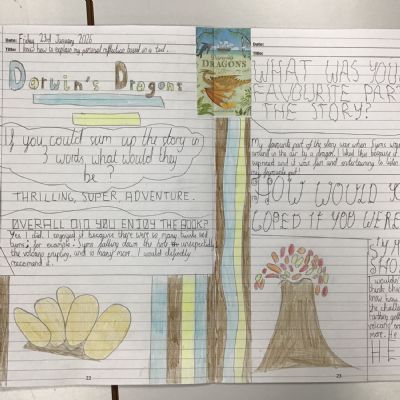 Date: Friday 23rd January 2026
Title: I know how to explain my personal reflection based on a text.
Darwin's Dragons
If you could sum up the story in
3 words what would they
be?
THRILLING, SUPER, ADVENTURE.
OVERALL DID YOU ENJOY THE BOOK?
Yes I did. I enjoyed it because there were so many twists and
turns, for example: Syms falling down the hole unexpectedly
the volcano erupting, and so many more. I would definitely
recommend it.
22
Date:
Title:
Darwin's
DRAGONS
WHAT WAS YOU
FAVOURITE PAR
THE STORY?
My favourite part of the story was when Syms was
around in the air by a dragon. I liked this because it
and it was fun and entertaining to
my favourite part!
HOW WOULD YO
COPED IF YOU WERE
HE
23